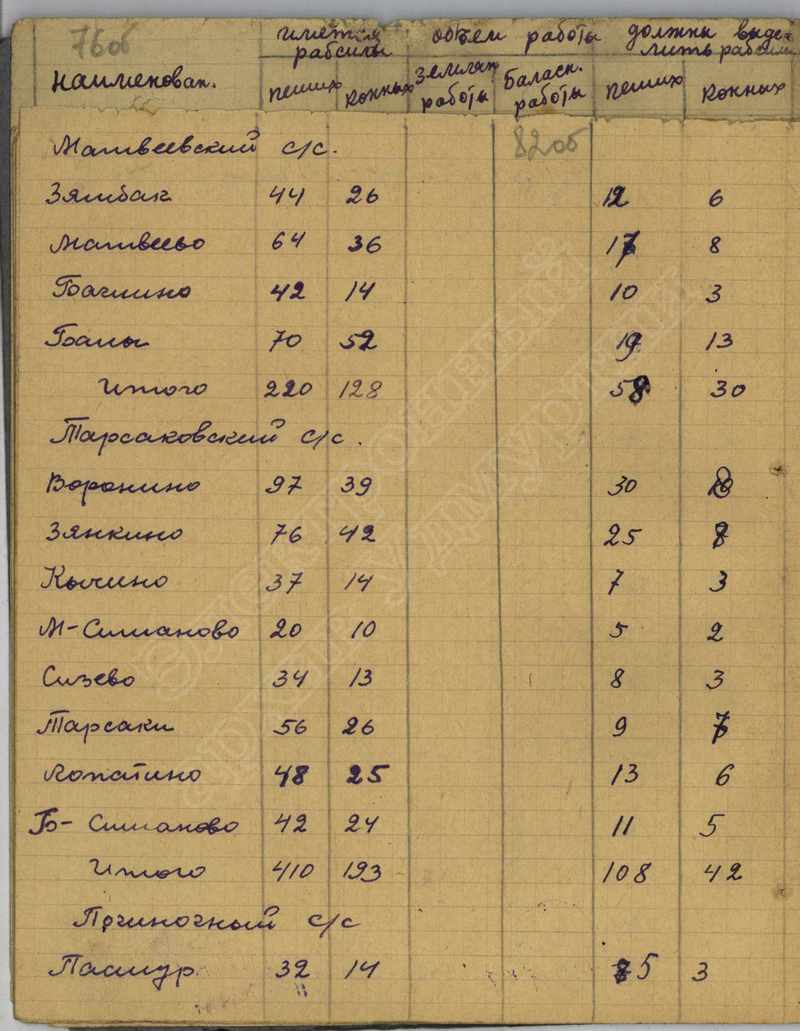 76об
имеется рабсилы объем работы должны выделить рабсилы
наименован. пеших конных землян работы баласн. работы пеших конных
Матвеевский с/с. 82об
Зямбак 44 26 12 6
Матвеево 64 36 17 8
Бачмино 42 14 10 3
Баны 70 52 19 13
Итого 220 128 58 30
Тарсаковский с/с.
Воронино 97 39 30
Зянкино 76 42 25 8
Кычино 37 14 7 3
М-Симаново 20 10 5 2
Сизево 34 13 8 3
Тарсаки 56 26 9
Лопатино 48 25 13 6
Б- Симаново 42 24 11 5
Итого 410 193 108 42
Починочный с/с
Пасшур 32 14 5 3